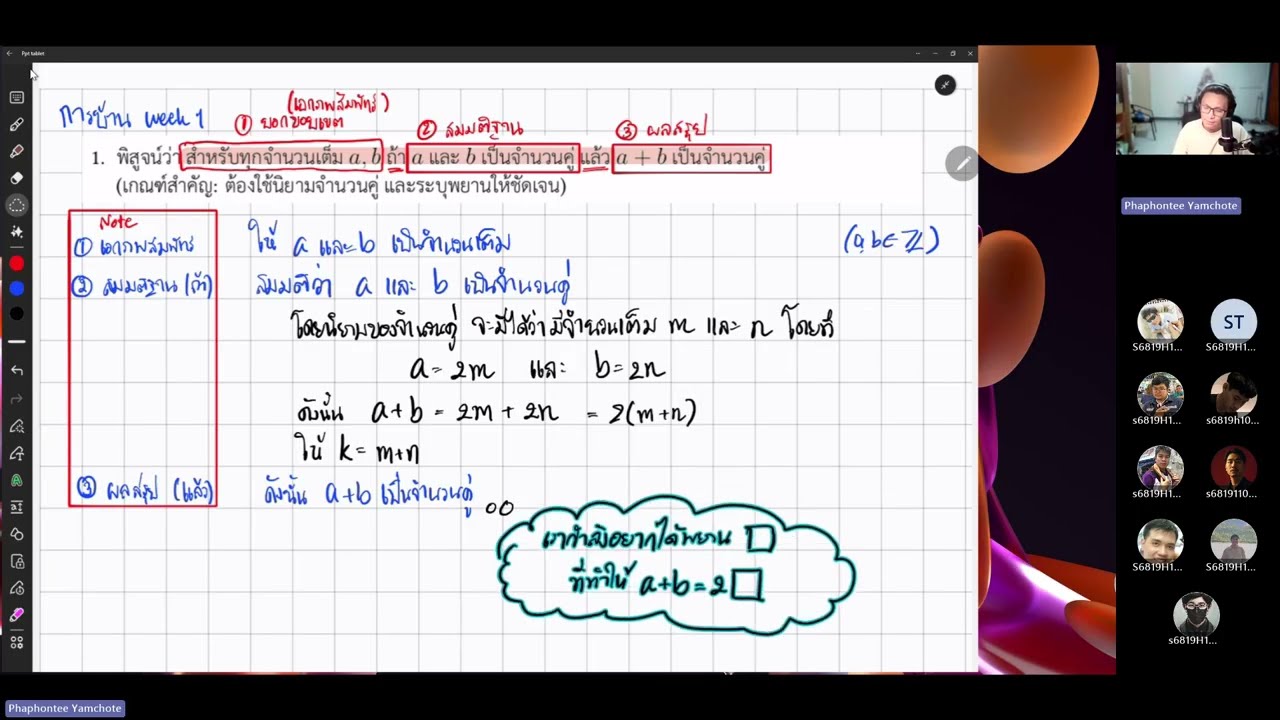 Ppt tablet
การบ้าน week 1
(เอกภพสัมพัทธ์)
① บอกขอบเขต
② สมมติฐาน
③ ผลสรุป
1. พิสูจน์ว่า สำหรับทุกจำนวนเต็ม a, b ถ้า a และ b เป็นจำนวนคู่ แล้ว a + b เป็นจำนวนคู่
(เกณฑ์สำคัญ: ต้องใช้นิยามจำนวนคู่ และระบุพยานให้ชัดเจน)
Note
① เอกภพสัมพัทธ์
ให้ a และ b เป็นจำนวนเต็ม (a, b ∈ ℤ)
② สมมติฐาน (ถ้า)
สมมติว่า a และ b เป็นจำนวนคู่
โดยนิยามของจำนวนคู่ จะมีได้ว่า มีจำนวนเต็ม m และ n โดยที่
a = 2m และ b = 2n
ดังนั้น a+b = 2m + 2n = 2(m+n)
ให้ k = m+n
③ ผลสรุป (แล้ว)
ดังนั้น a+b เป็นจำนวนคู่
เรากำลังอยากได้พยาน □
ที่ทำให้ a+b = 2□
Phaphontee Yamchote
ST
S6819H1...
S6819H1...
S6819H1...
s6819h10...
S6819H1...
s6819110...
S6819H1...
S6819H1...
s6819H1...
Phaphontee Yamchote